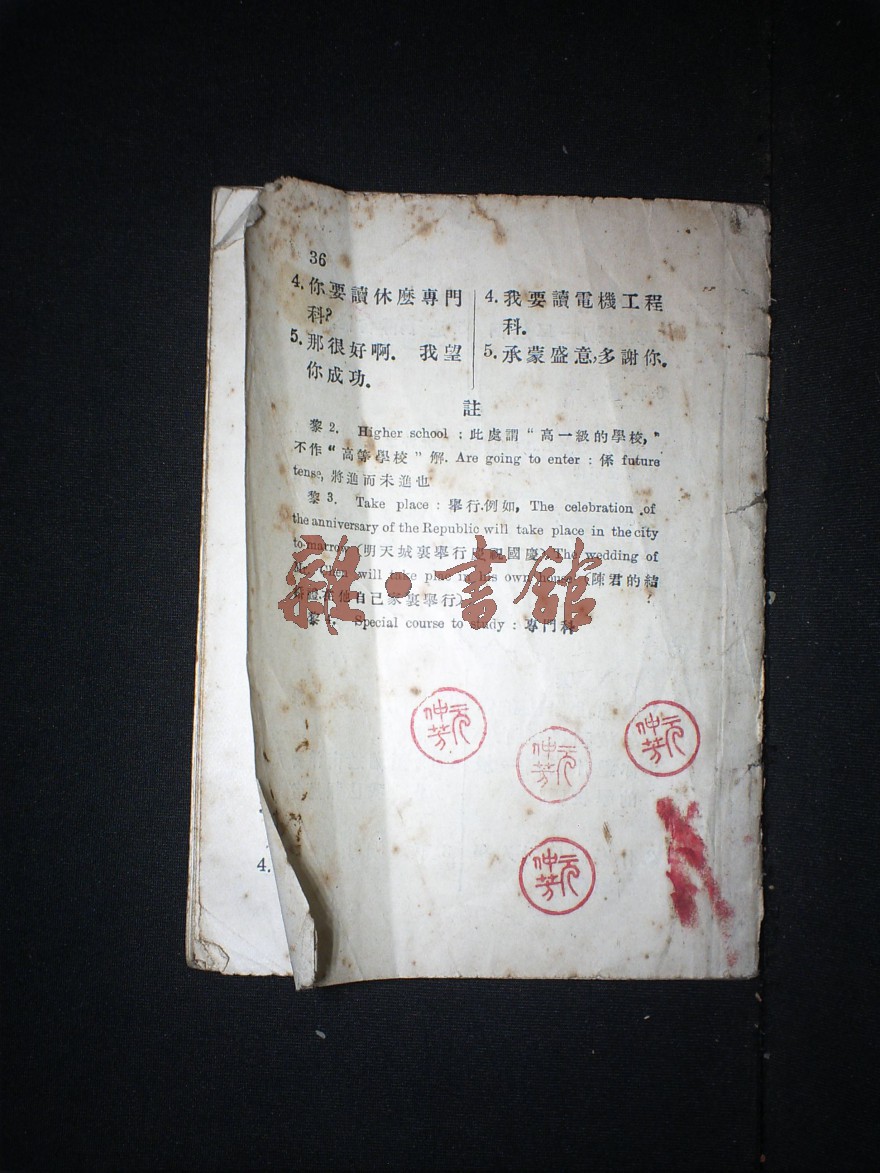 36
4. 你要讀休麽專門
科?
4. 我要讀電機工程
科.
5. 那很好啊. 我望
你成功.
5. 承蒙盛意,多謝你.
註
黎 2. Higher school : 此處謂 “ 高一級的學校, ”
不作 “ 高等學校 ” 解. Are going to enter : 係 future
tense, 將進而未進也
黎 3. Take place : 舉行.例如, The celebration of
the anniversary of the Republic will take place in the city
to-marrow (明天城裏舉行慶祝國慶) The wedding of
will take place in his own house. (陳君的
他自己家裏舉行)
黎 4. Special course to study : 專門科
雜·書館
仲芳
仲芳
仲芳
仲芳
4.